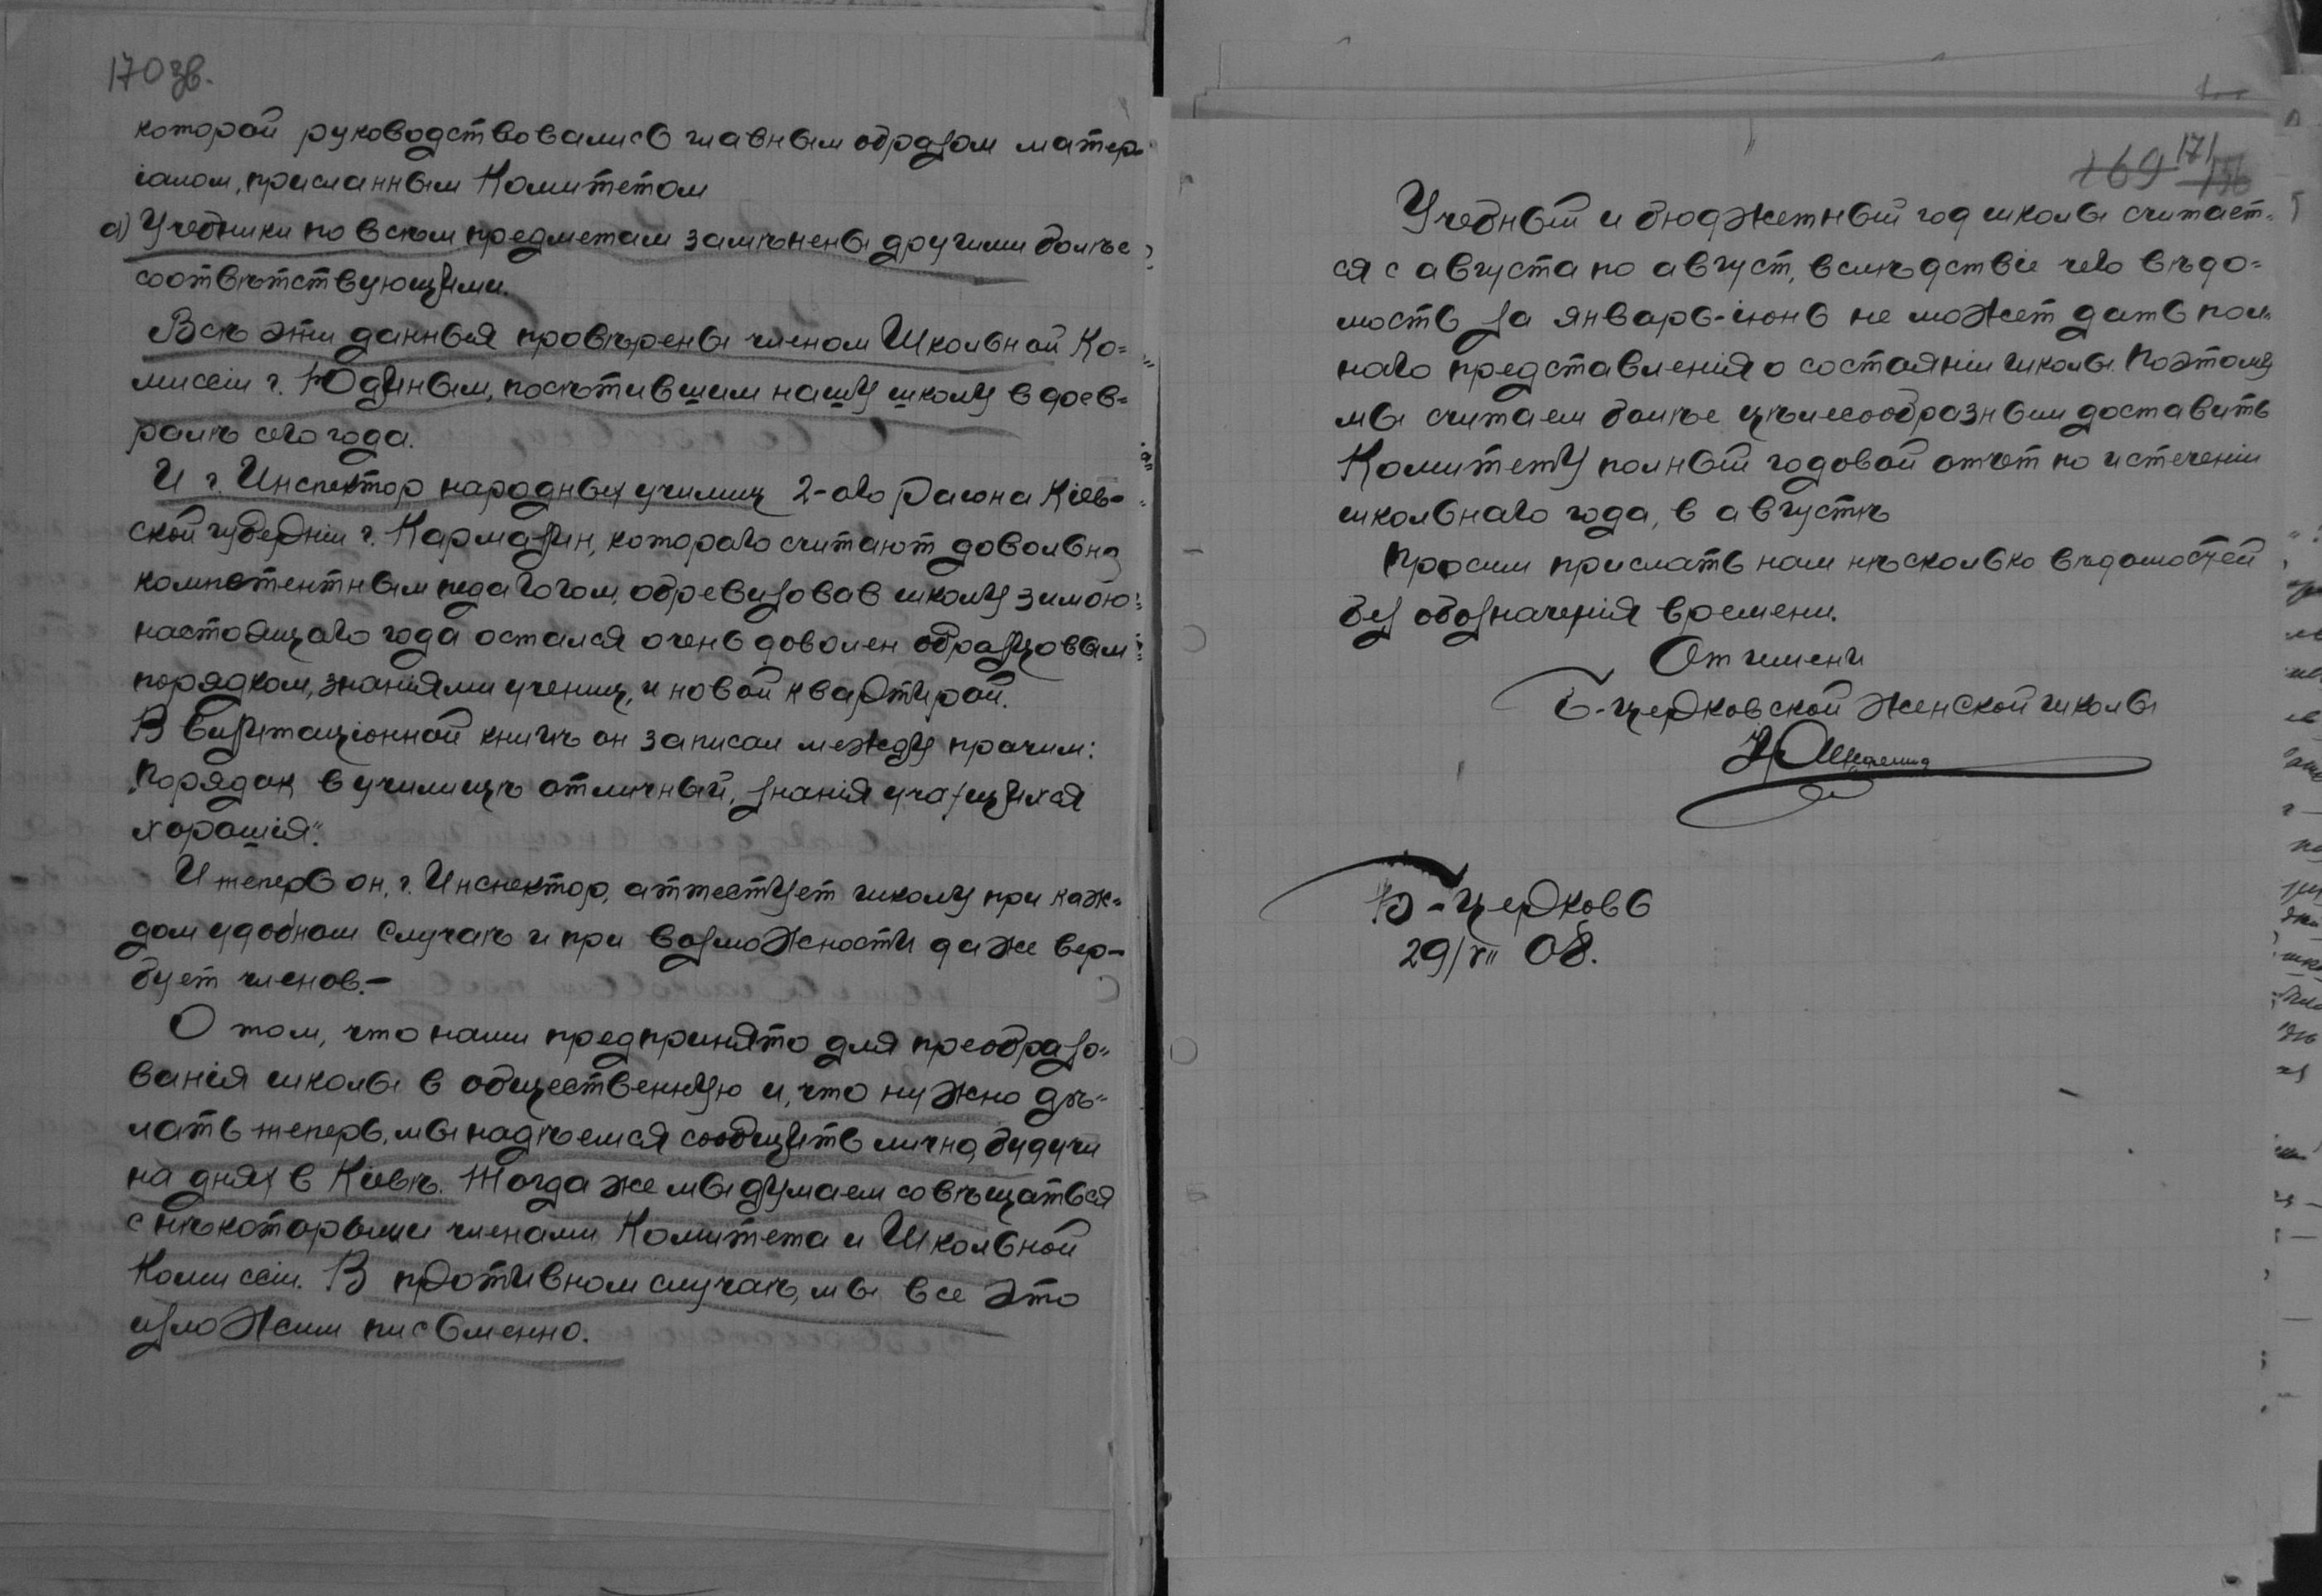 170 зв.
которой руководствовались главным образом матер-
iалом, присланным Комитетом
а) Учебники по всѣм предметам замѣнены другими болѣе
соотвѣтствующими.
Всѣ эти данныя провѣрены членом Школьной Ко=
миссiи г. Юдиным, посѣтившим нашу школу в фев=
ралѣ сего года.
И г. Инспектор народных училищ 2-ого района Кiев-
ской губернiи г. Кармазин, котораго считают довольно
компетентным педагогом, обревизовав школу зимою
настоящаго года остался очень доволен образцовым
порядком, знанiями учениц, и новой квартирой.
В визитацiонной книгѣ он записал между прочим:
„Порядок в училищѣ отличный, знанiя учащихся
хорошiя".
И теперь он, г. Инспектор, аттестует школу при каж=
дом удобном случаѣ и при возможности даже вер-
бует членов.-
О том, что нами предпринято для преобразо=
ванiя школы в общественную и, что нужно дѣ=
лать теперь, мы надѣемся сообщить лично, будучи
на днях в Кiевѣ. Тогда же мы думаем совѣщаться
с нѣкоторыми членами Комитета и Школьной
Комиссiи. В противном случаѣ, мы все это
изложим письменно.
169 171 156
Учебный и бюджетный год школы считает=
ся с августа по август, вслѣдствiе чего вѣдо=
мость за январь-iюнь не может дать пол=
наго представленiя о состоянiи школы. Поэтому
мы считаем болѣе цѣлесообразным доставить
Комитету полный годовой отчет по истеченiи
школьнаго года, в августѣ
Просим прислать нам нѣсколько вѣдомостей
без обозначенiя времени.
От имени
Б-церковской женской школы
Б-Церковь
29/VII 08.